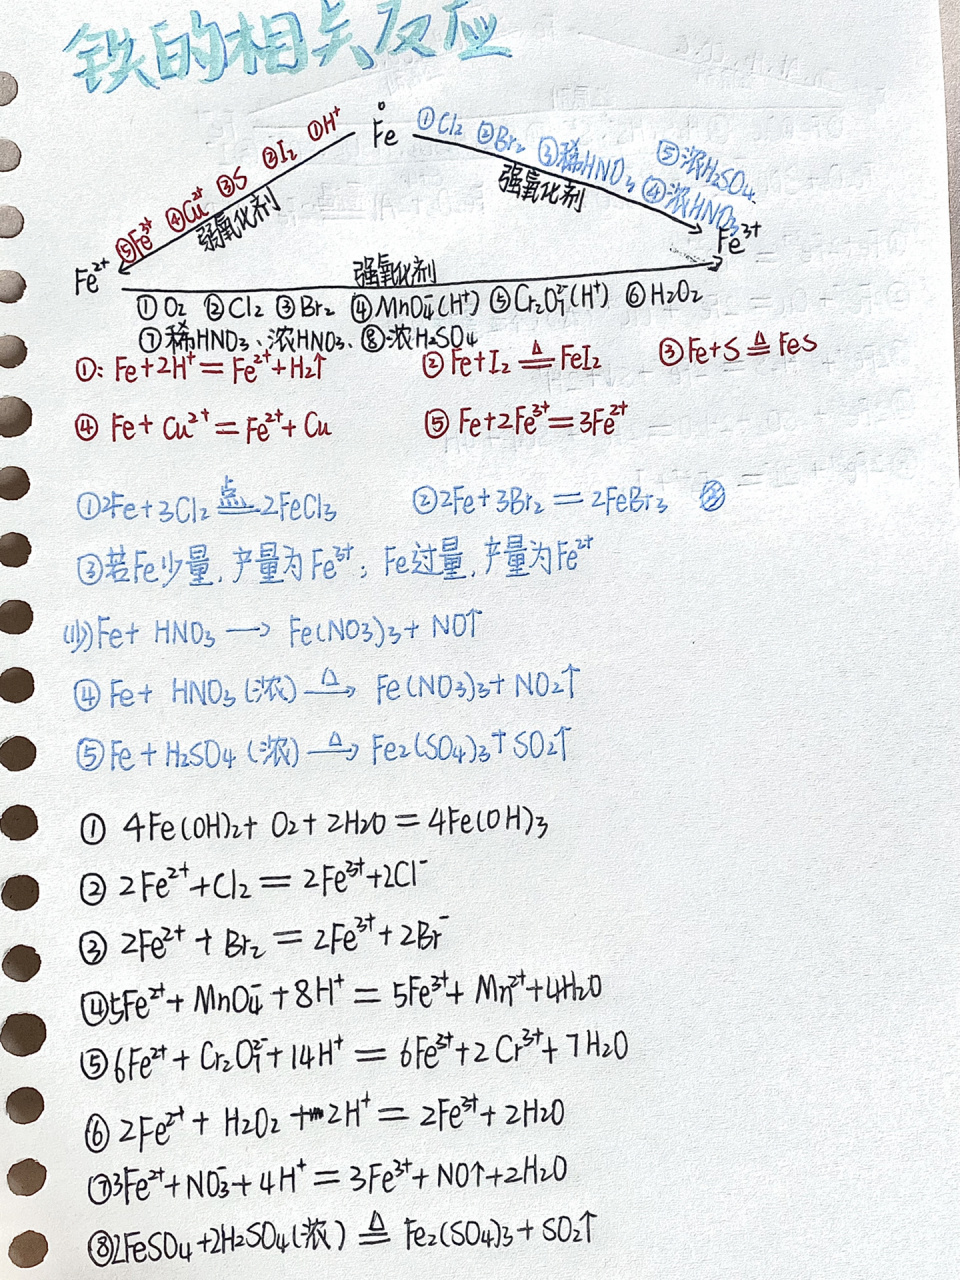 铁的相关反应
Fe
①H⁺ ②I₂ ③S ④Cu²⁺ ⑤Fe³⁺
弱氧化剂
①Cl₂ ②Br₂ ③稀HNO₃ ④浓HNO₃ ⑤浓H₂SO₄
强氧化剂
Fe²⁺ 强氧化剂 Fe³⁺
①O₂ ②Cl₂ ③Br₂ ④MnO₄⁻(H⁺) ⑤Cr₂O₇²⁻(H⁺) ⑥H₂O₂
⑦稀HNO₃、浓HNO₃、⑧浓H₂SO₄
①: Fe+2H⁺=Fe²⁺+H₂↑ ②Fe+I₂ ≜ FeI₂ ③Fe+S ≜ FeS
④ Fe+Cu²⁺=Fe²⁺+Cu ⑤ Fe+2Fe³⁺=3Fe²⁺
①2Fe+3Cl₂ 点= 2FeCl₃ ②2Fe+3Br₂=2FeBr₃
③若Fe少量,产量为Fe³⁺; Fe过量,产量为Fe²⁺
(少)Fe+ HNO₃ → Fe(NO₃)₃+NO↑
④Fe+ HNO₃(浓) △→ Fe(NO₃)₃+NO₂↑
⑤Fe+H₂SO₄(浓) △→ Fe₂(SO₄)₃+SO₂↑
① 4Fe(OH)₂+O₂+2H₂O=4Fe(OH)₃
② 2Fe²⁺+Cl₂=2Fe³⁺+2Cl⁻
③ 2Fe²⁺+Br₂=2Fe³⁺+2Br⁻
④5Fe²⁺+MnO₄⁻+8H⁺=5Fe³⁺+Mn²⁺+4H₂O
⑤6Fe²⁺+Cr₂O₇²⁻+14H⁺=6Fe³⁺+2Cr³⁺+7H₂O
⑥ 2Fe²⁺+H₂O₂+2H⁺=2Fe³⁺+2H₂O
⑦3Fe²⁺+NO₃⁻+4H⁺=3Fe³⁺+NO↑+2H₂O
⑧2FeSO₄+2H₂SO₄(浓) ≜ Fe₂(SO₄)₃+SO₂↑